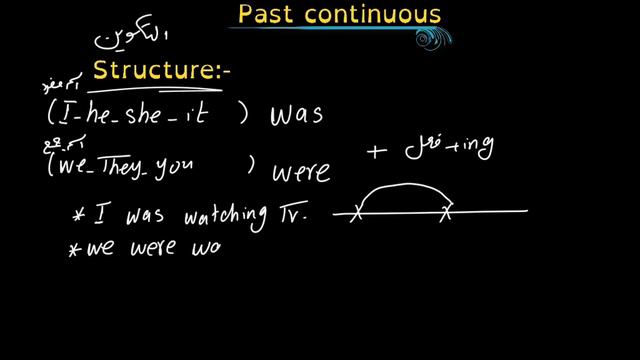 Past continuous
التكوين
Structure:-
اسم مفرد
(I-he-she-it ) was
اسم جمع
(we-They-you ) were
+ فعل + ing
* I was watching Tv.
* we were wa